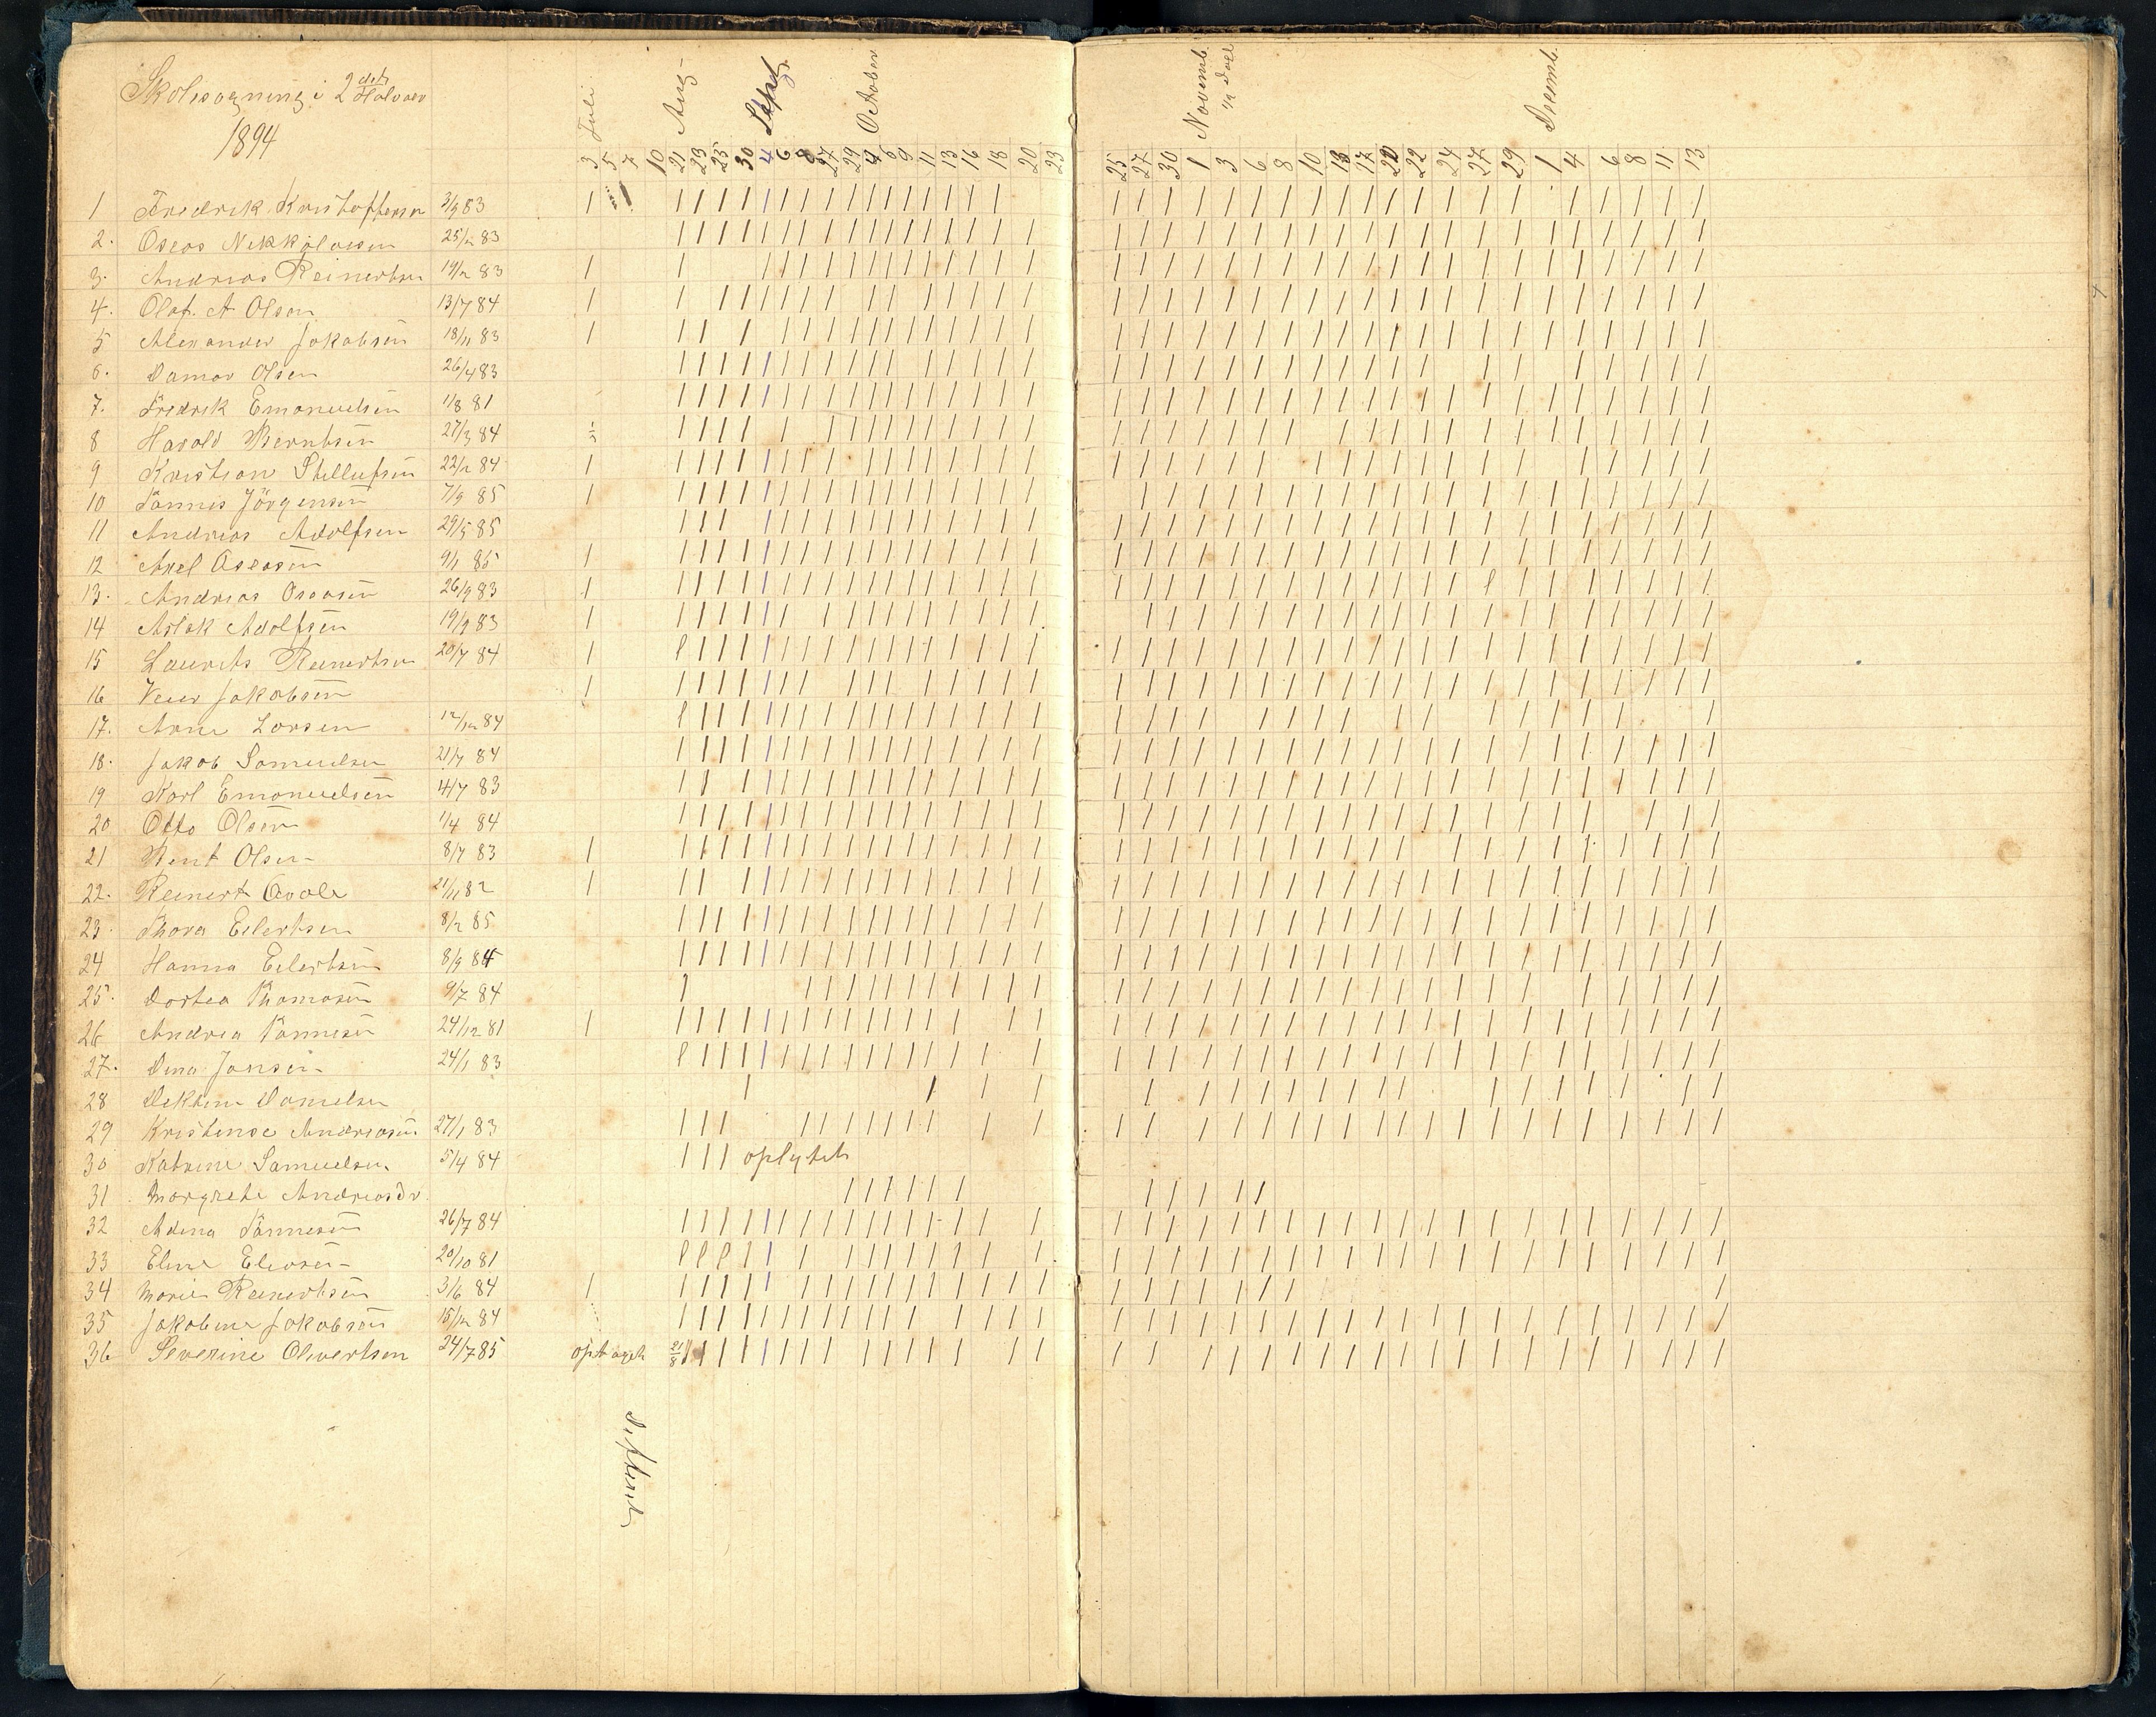 Skolesøgning i 2det Halvaar
1894
Juli Aug Sept October
3 5 7 10 21 23 25 30 4 6 8 27 29 4 6 9 11 13 16 18 20 23
Novemb. Desemb.
25 27 30 1 3 6 8 10 13 17 20 22 24 27 29 1 4 6 8 11 13
1 Fredrik Kristoffersen 3/9 83
2. Oseas 25/12 83
3. Andreas Reinertsen 19/12 83
4. Olaf. A Olsen 13/7 84
5 Alexander Jakobsen 18/11 83
6. Olsen 26/4 83
7. Fredrik Emanuelsen 1/8 81
8 Harald Berntsen 27/3 84
9 Kristian Stellufsen 22/2 84
10 Tønnes Jörgensen 7/9 85
11 Andreas Adolfsen 29/5 85
12 Axel Oseasen 9/1 85
13. Andreas Oseasen 26/9 83
14 Aslak Adolfsen 19/9 83
15 Laurits Reinertsen 20/7 84
16 Jakobsen
17. Arne Larsen 84
18. Jakob Samuelsen 21/7 84
19 Karl Emanuelsen 4/7 83
20 Otto Olsen 1/4 84
21 Bent Olsen 8/7 83
22. Reinert 21/11 82
23. Thora Eilertsen 8/2 85
24 Hanna Eilertsen 8/9 84
25. Dortea Thomasen 9/7 84
26 Andrea Tønnesen 24/12 81
27. Dina Jansen 24/1 83
28 Danielsen
29 Kristense Andreasen 27/1 83
30 Katrine Samuelsen 5/4 84
31 Margrethe Andreasdr.
32 Adina Tönnesen 26/7 84
33 Eline Eliasen 20/10 81
34 Marie Reinertsen 3/6 84
35 Jakobine Jakobsen 15/12 84
36 Severine Olivertsen 24/7 85 optaget 21/8